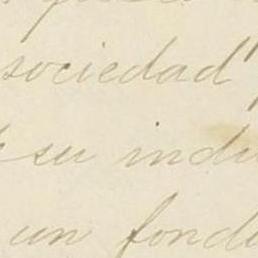 sociedad"
su indu
un fondo